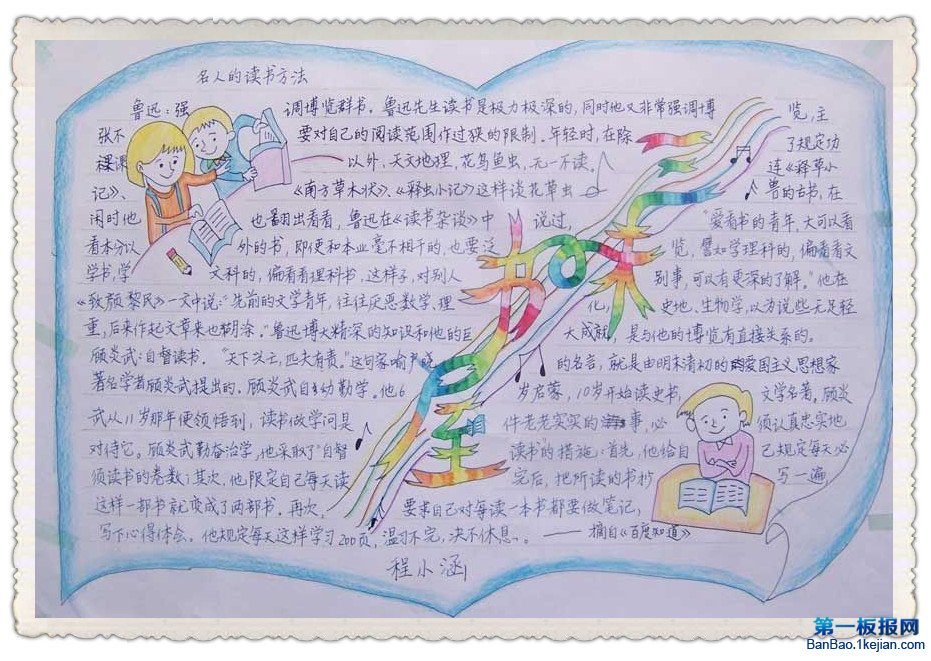 名人的读书方法
鲁迅：强调博览群书。鲁迅先生读书是极力极深的，同时他又非常强调博览，主
张不要对自己的阅读范围作过狭的限制。年轻时，在除了规定功
课以外，天文地理，花鸟鱼虫，无一不读。连《释草小
记》、《南方草木状》、《释虫小记》这样谈花草虫兽的古书，在
闲时他也翻出看看，鲁迅在《读书杂谈》中说过，“爱看书的青年，大可以看
看本分以外的书，即使和本业毫不相干的，也要泛览，譬如学理科的，偏看看文
学书，学文科的，偏看看理科书，这样子，对别人别事，可以有更深的了解。”他在
《致颜黎民》一文中说：“先前的文学青年，往往厌恶数学、理化，史地、生物学，以为说些无足轻
重，后来作起文章来也胡涂。”鲁迅博大精深的知识和他的巨大成就，是与他的博览有直接关系的。
顾炎武：自督读书。“天下兴亡，匹夫有责。”这句家喻户晓的名言，就是由明末清初的爱国主义思想家
著名学者顾炎武提出的。顾炎武自幼勤学。他6岁启蒙，10岁开始读史书、文学名著，顾炎
武从11岁那年便领悟到，读书做学问是件老老实实的事，必须认真忠实地
对待它。顾炎武勤奋治学，他采取了“自督读书”的措施：首先，他给自己规定每天必
须读书的卷数；其次，他限定自己每天读完后，把所读的书抄写一遍
这样一部书就变成了两部书。再次，要求自己对每读一本书都要做笔记，
写下心得体会。他规定每天这样学习200页，温习不完，决不休息。——摘自《百度知道》
程小涵
书中乐园
第一板报网
BanBao.1kejian.com